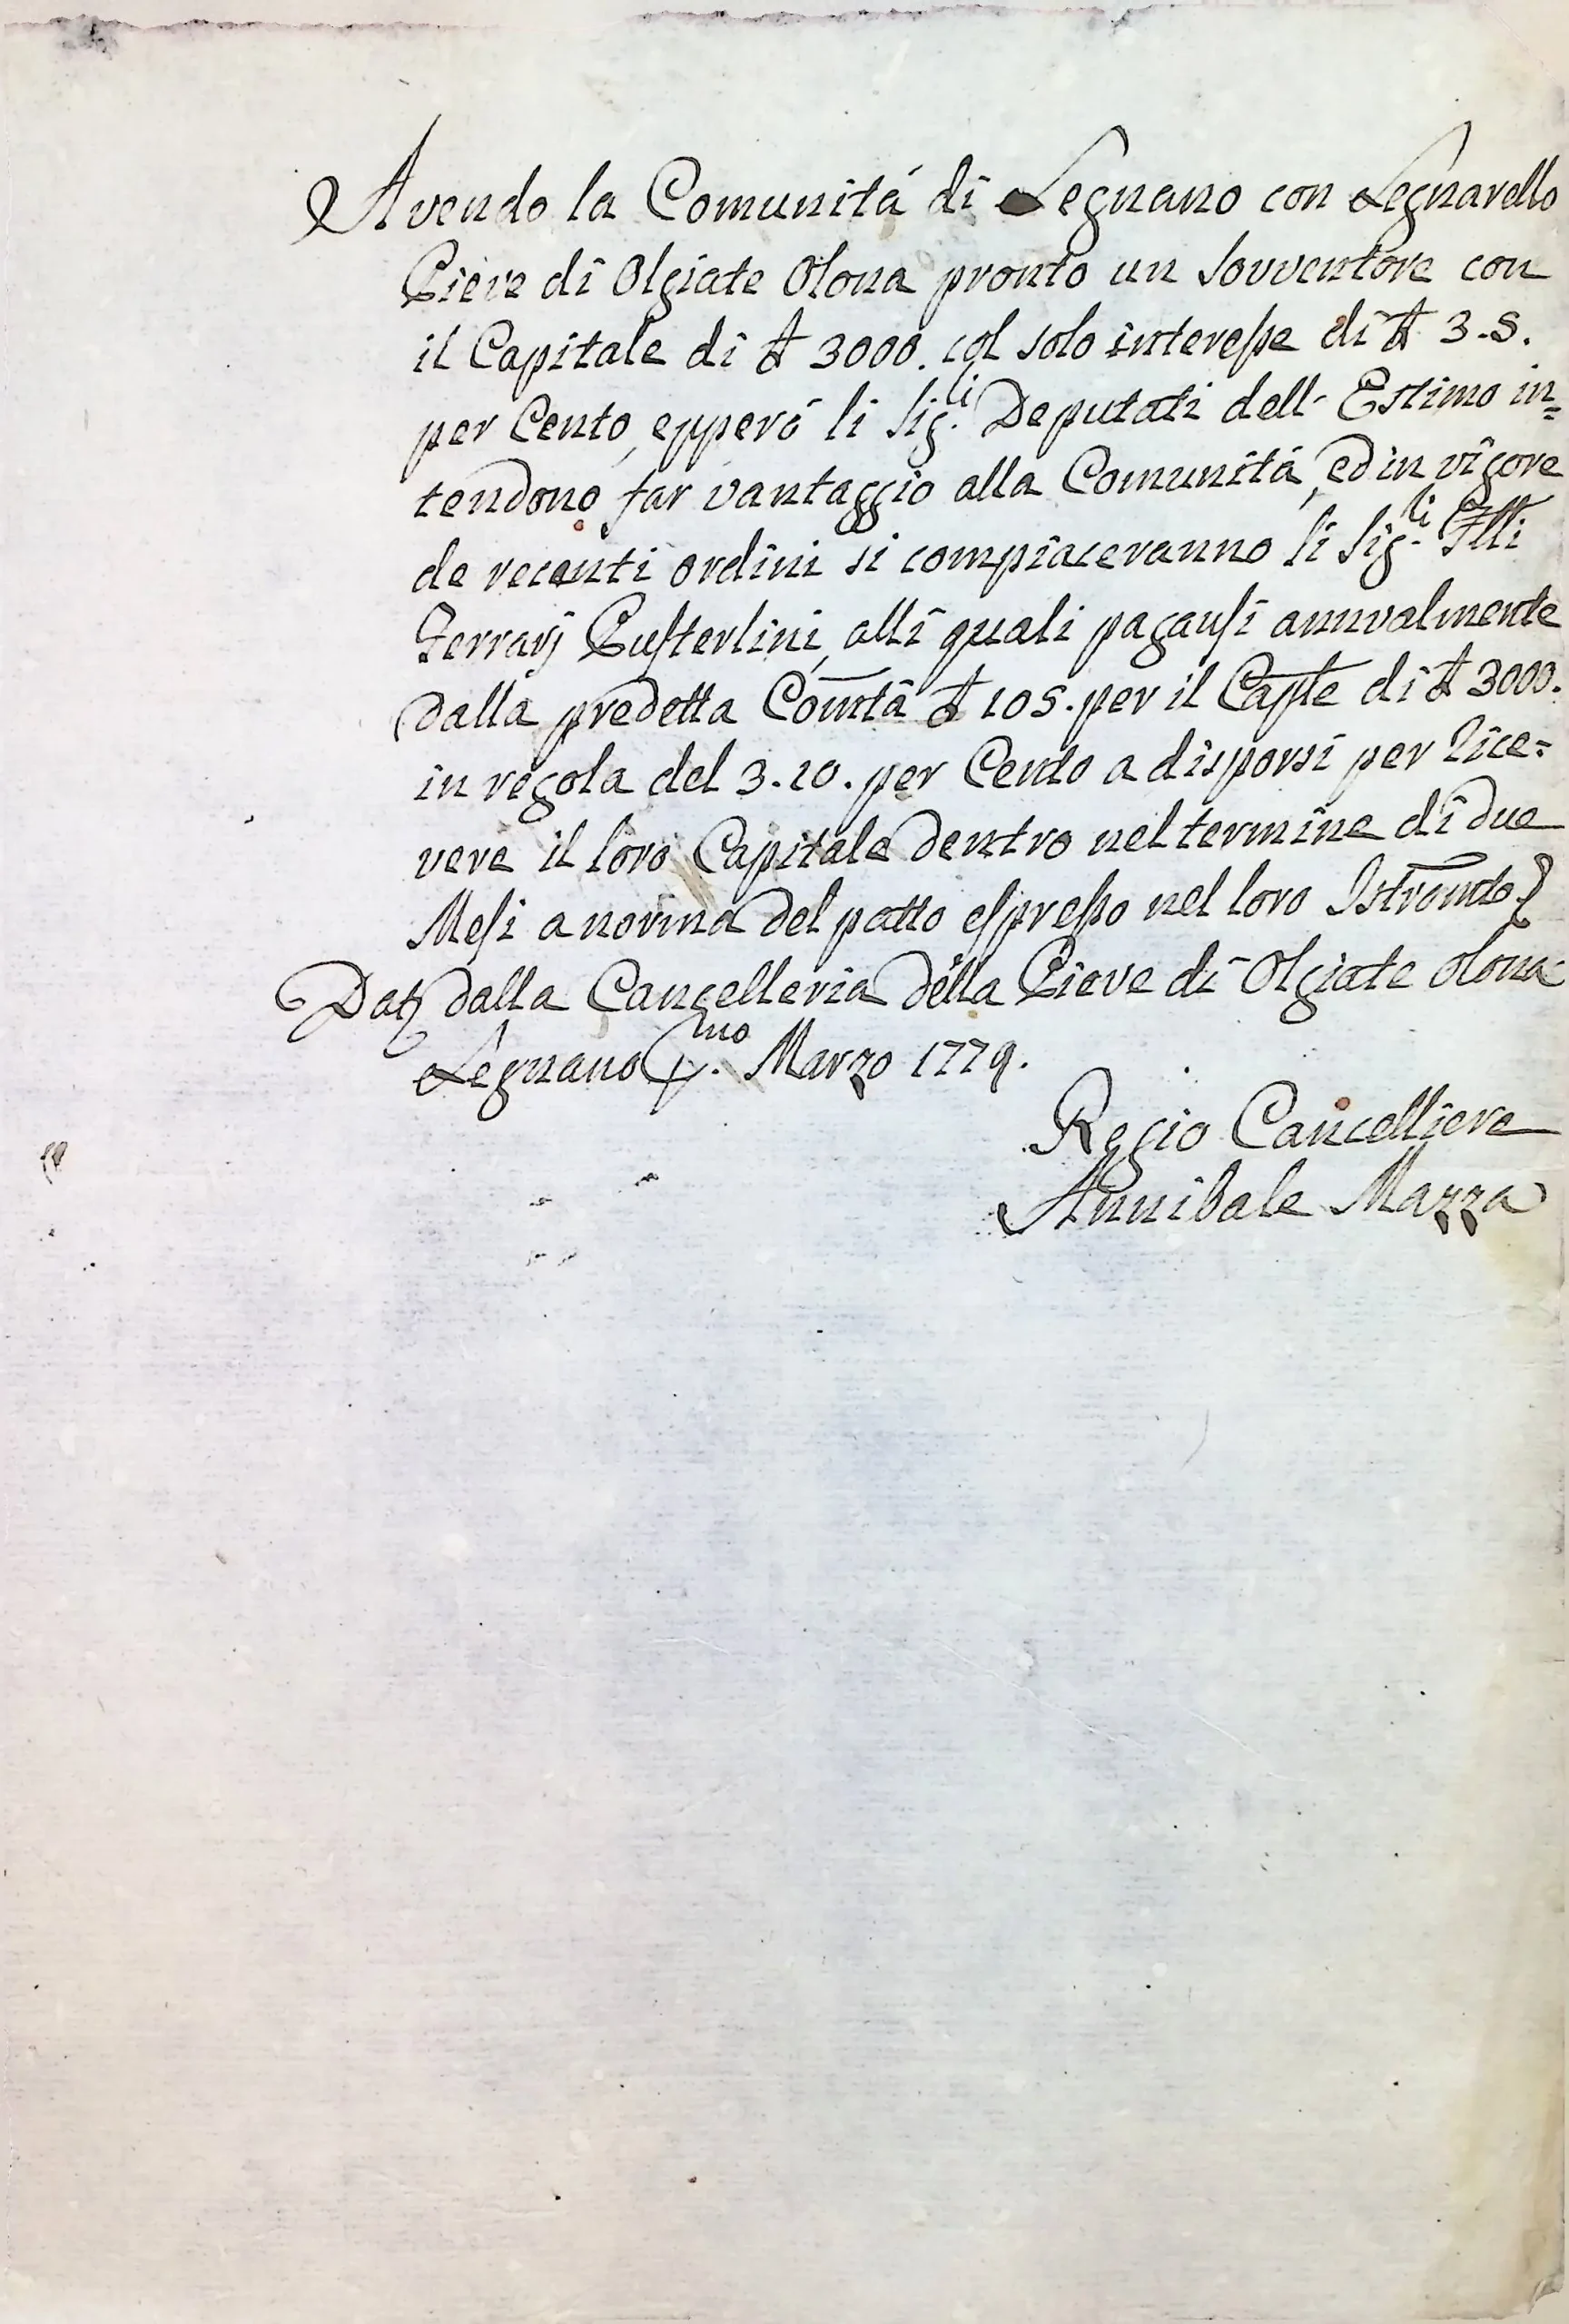 Avendo la Comunitá di Legnano con Legnarello
Pieve di Olgiate Olona pronto un Sovventore con
il Capitale di £ 3000. col solo interesse di £ 3.5.
per Cento, epperó li Sig.li Deputati dell' Estimo in=
tendono far vantaggio alla Comunitá, ed in vigore
de recenti ordini si compiaceranno li Sig.li Flli
Ferrarj Pusterlini, alli quali pagansi annualmente
dalla predetta Comtá £ 105. per il Caple di £ 3000.
in regola del 3.10. per Cento a disporsi per Rice=
vere il loro Capitale dentro nel termine di due
Mesi a norma del patto espresso nel loro Istromto
Dat. dalla Cancelleria della Pieve di Olgiate Olona
Legnano p.mo Marzo 1779.
Regio Cancelliere
Annibale Mazza